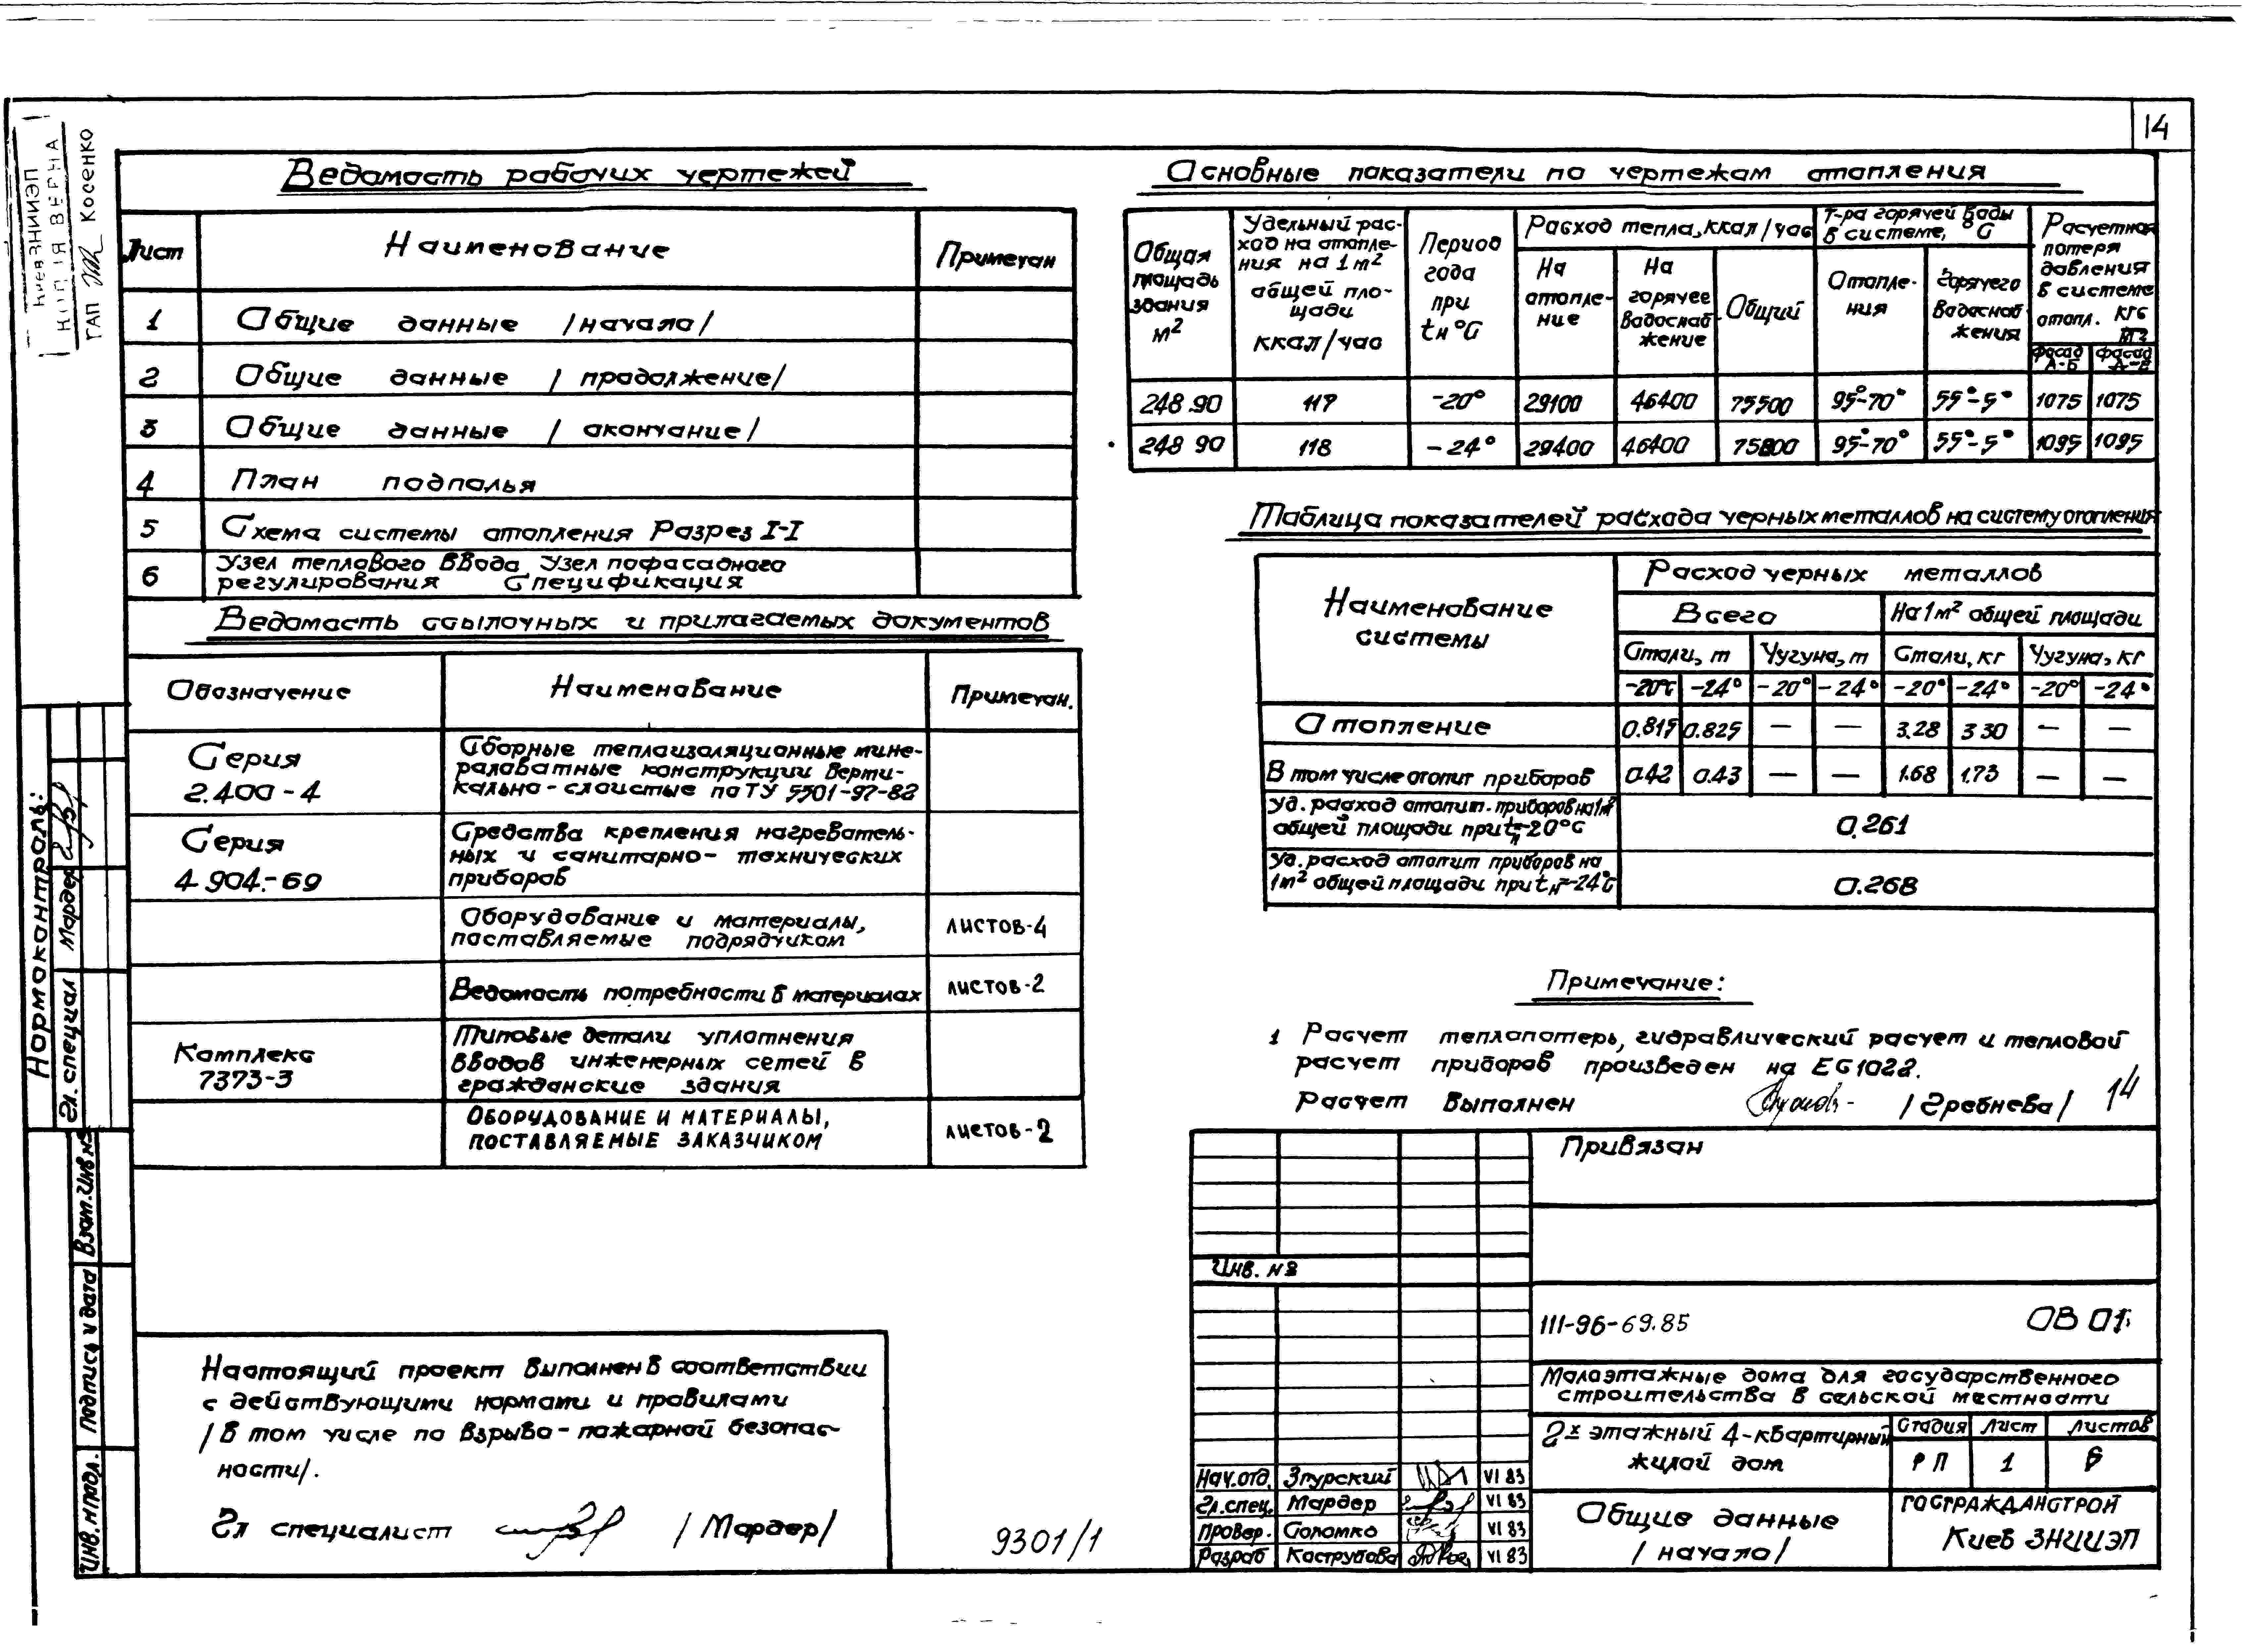 14
КиевЗНИИЭП
КОПІЯ ВЕРНА
ГАП Косенко
Ведомость рабочих чертежей
Лист Наименование Примечан
1 Общие данные /начало/
2 Общие данные /продолжение/
3 Общие данные /окончание/
4 План подполья
5 Схема системы отопления Разрез I-I
6 Узел теплового ввода Узел пофасадного
регулирования Спецификация
Ведомость ссылочных и прилагаемых документов
Обозначение Наименование Примечан.
Серия
2.400-4
Сборные теплоизоляционные мине-
раловатные конструкции верти-
кально-слоистые по ТУ 5501-97-82
Серия
4.904.-69
Средства крепления нагреватель-
ных и санитарно-технических
приборов
Оборудование и материалы,
поставляемые подрядчиком
листов-4
Ведомость потребности в материалах листов-2
Комплекс
7373-3
Типовые детали уплотнения
вводов инженерных сетей в
гражданские здания
ОБОРУДОВАНИЕ И МАТЕРИАЛЫ,
ПОСТАВЛЯЕМЫЕ ЗАКАЗЧИКОМ
листов-2
Основные показатели по чертежам отопления
Общая
площадь
здания
м²
Удельный рас-
ход на отопле-
ния на 1м²
общей пло-
щади
ккал/час
Период
года
при
tн °С
Расход тепла, ккал/час
На
отопле-
ние
На
горячее
водоснаб-
жение
Общий
т-ра горячей воды
в системе, °С
Отопле-
ния
Горячего
водоснаб
жения
Расчетная
потеря
давления
в системе
отопл. кгс
фасад
А-Б
фасад
А-В
248.90 117 -20° 29100 46400 75500 95°-70° 55°-5° 1075 1075
248 90 118 -24° 29400 46400 75800 95°-70° 55°-5° 1095 1095
Таблица показателей расхода черных металлов на систему отопления
Наименование
системы
Расход черных металлов
Всего На 1м² общей площади
Стали, т Чугуна, т Стали, кг Чугуна, кг
-20°С -24° -20° -24° -20° -24° -20° -24°
Отопление 0.815 0.825 — — 3.28 3 30 — —
В том числе отопит приборов 0.42 0.43 — — 1.68 1.73 — —
Уд. расход отопит. приборов на 1м²
общей площади при tн=-20°С
0.261
Уд. расход отопит приборов на
1м² общей площади при tн=-24°С
0.268
Примечание:
1 Расчет теплопотерь, гидравлический расчет и тепловой
расчет приборов произведен на ЕС1022.
Расчет выполнен /Гребнева/
14
Нормоконтроль:
Гл. специал Мардер
Взам. инв №
Подпись и дата
Инв. № подл.
Настоящий проект выполнен в соответствии
с действующими нормами и правилами
/в том числе по взрыво-пожарной безопас-
ности/.
Гл специалист /Мардер/
9301/1
Привязан
Инв. №
III-96-69.85 ОВ 01
Малоэтажные дома для государственного
строительства в сельской местности
2х этажный 4-квартирный
жилой дом
Стадия Лист Листов
РП 1 6
Общие данные
/начало/
ГОСГРАЖДАНСТРОЙ
Киев ЗНИИЭП
Нач.отд. Згурский VI 83
Гл.спец. Мардер VI 83
Провер. Соломко VI 83
Разраб Кострубова VI 83